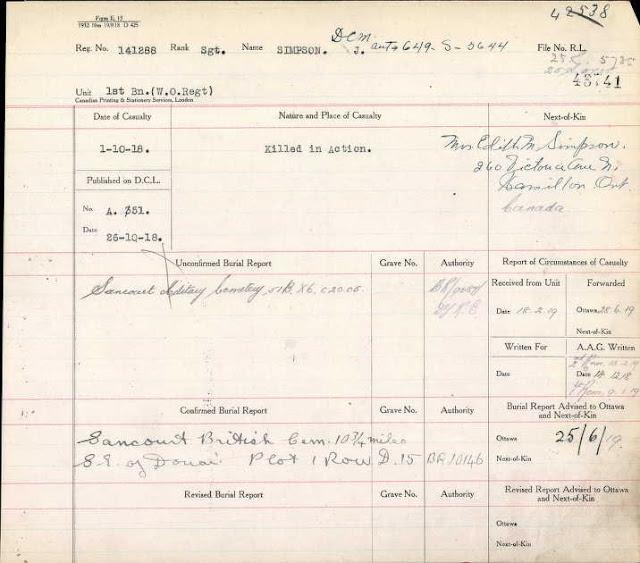 42538
Form E. 15
Reg. No. 141288 Rank Sgt. Name SIMPSON. J. DCM. auth 649-S-3644 File No. R.L.
43741
Unit 1st Bn.(W.O.Regt)
Canadian Printing & Stationery Services, London
Date of Casualty Nature and Place of Casualty Next-of-Kin
1-10-18. Killed in Action. Mrs Edith M Simpson.
260 Victoria Ave N.
Hamilton Ont
Canada
Published on D.C.L.
No. A. 351.
Date
26-10-18.
Unconfirmed Burial Report Grave No. Authority Report of Circumstances of Casualty
Sancourt Military Cemetery, 51B. X6. c.20.05.
Received from Unit Forwarded
Date 18-2-19 Ottawa 28-6-19
Next-of-Kin
Written For A.A.G. Written
Date Date 18-12-18
Confirmed Burial Report Grave No. Authority Burial Report Advised to Ottawa and Next-of-Kin
Sancourt British Cem. 10 3/4 miles
S.E. of Douai Plot 1 Row D. 15 BR10146
Ottawa 25/6/19.
Next-of-Kin
Revised Burial Report Grave No. Authority Revised Report Advised to Ottawa and Next-of-Kin
Ottawa
Next-of-Kin